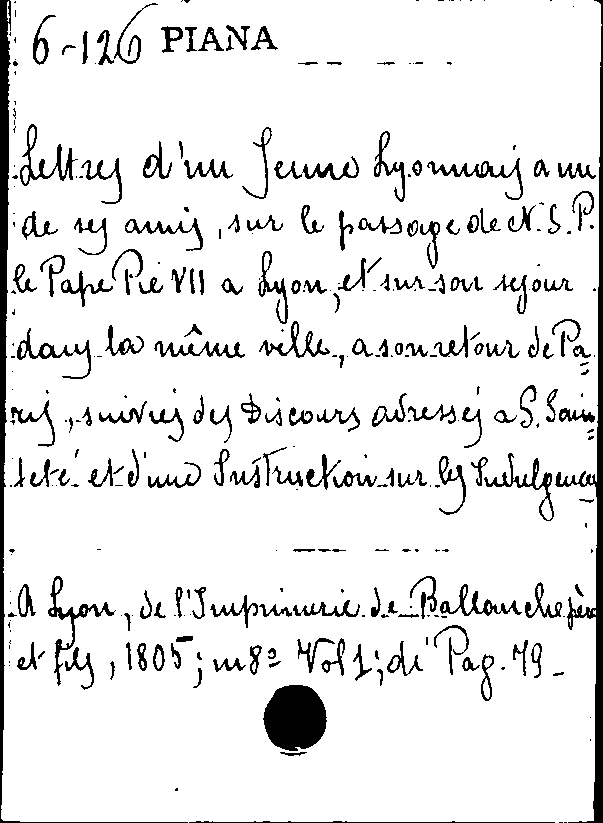 6-126 PIANA
Lettres d'un Jeune Lyonnais a un
de ses amis, sur le passage de N. S. P.
le Pape Pie VII a Lyon, et sur son sejour
dans la même ville, a son retour de Pa=
ris, suivies des Discours adressés a S. Sain=
teté et d'une Instruction sur les Indulgences
A Lyon, de l'Imprimerie de Ballanche père
et fils, 1805; in 8º Vol 1; di Pag. 79_